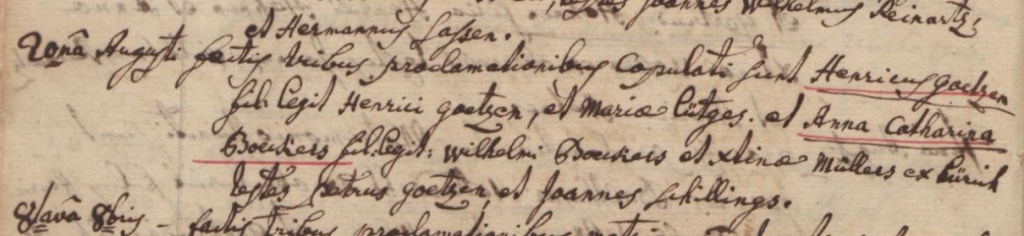 testes Joannes Wilhelmus Reinartz,
et Hermannus Jassen.
20nâ Augusti factis tribus proclamationibus Copulati sunt Henricus goetzen
fil: legit Henrici goetzen, et Mariæ Lütges. et Anna Catharina
Boeukers fil: legit: Wilhelmi Boeukers et xtinæ Müllers ex Bürich
testes Petrus goetzen, et Joannes Schillings.
8tavâ 8bris - factis tribus proclamationibus